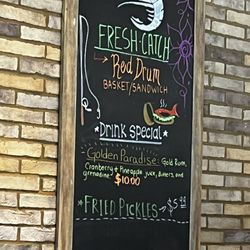 FRESH-CATCH
Red Drum
BASKET/SANDWICH
*Drink Special*
-Golden Paradise: Gold Rum,
Cranberry + Pineapple juice, Bitters, and
grenadine *$10.00
*FRIED PICKLES → $5